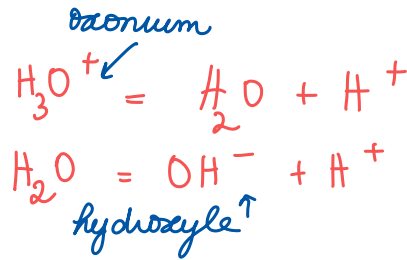 oxonium
H₃O⁺ = H₂O + H⁺
H₂O = OH⁻ + H⁺
hydroxyle